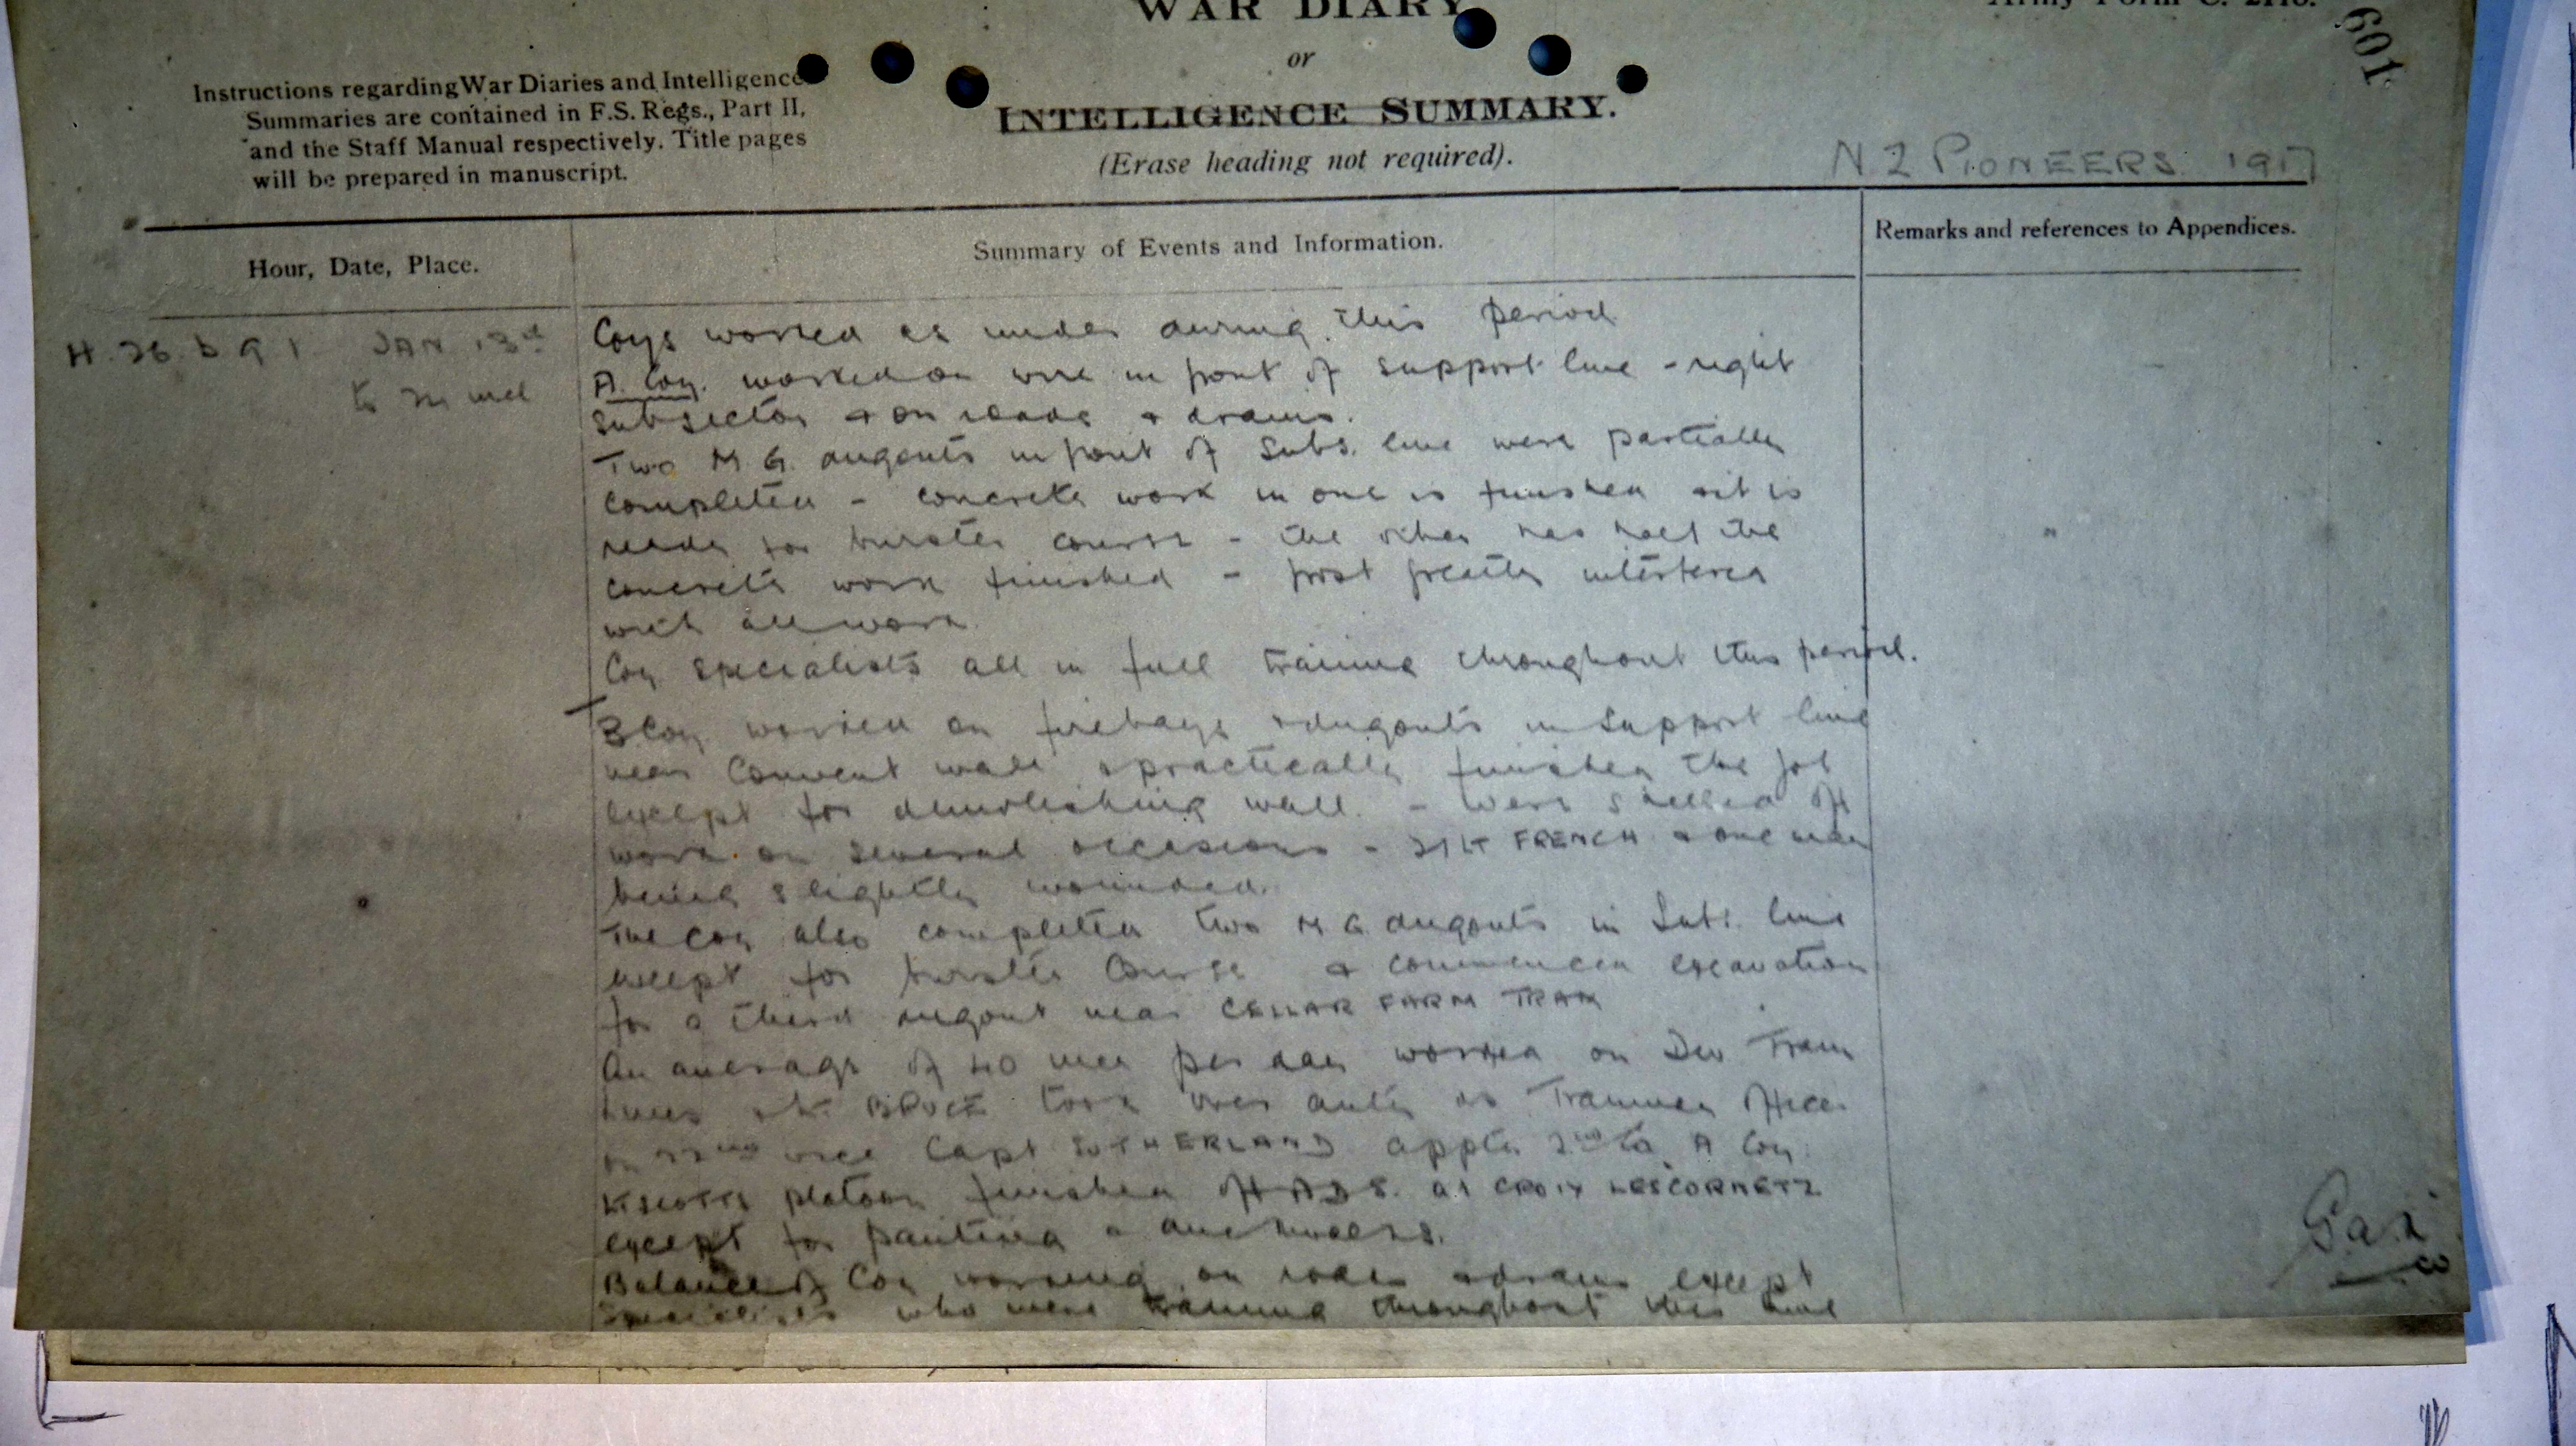 WAR DIARY
or
INTELLIGENCE SUMMARY.
(Erase heading not required).
Army Form C. 2118.
601
Instructions regarding War Diaries and Intelligence
Summaries are contained in F.S. Regs., Part II,
and the Staff Manual respectively. Title pages
will be prepared in manuscript.
N Z PIONEERS 1917
Hour, Date, Place.
Summary of Events and Information.
Remarks and references to Appendices.
H. 26. b 9 1 JAN 13th
to
Coys worked as under during this period
A. Coy. worked on wire in front of support line - right
subsector & on roads & drains.
Two M.G. dugouts in front of Subs. line were partially
completed - concrete work in one is finished & it is
ready for burster course - the other has half the
concrete work finished - frost greatly interfered
with all work
Coy specialists all in full training throughout this period.
B Coy worked on firebays & dugouts in support line
near Convent wall & practically finished the job
except for demolishing wall. - were shelled off
work on several occasions - 2/LT FRENCH & one man
being slightly wounded.
The Coy also completed two M G dugouts in Subs. line
except for burster course & commenced excavation
for a third dugout near CELLAR FARM TRAM
An average of 40 men per day worked on Div Tram
lines Lt. BRUCE took over duty as Tramway Officer
on 22nd vice Capt SUTHERLAND apptd 2nd to A Coy.
Lt SCOTTS platoon finished off A D S. at CROIX LESCORNETZ
except for painting &
Balance of Coy working on roads & drains except
Specialists who were training throughout this time